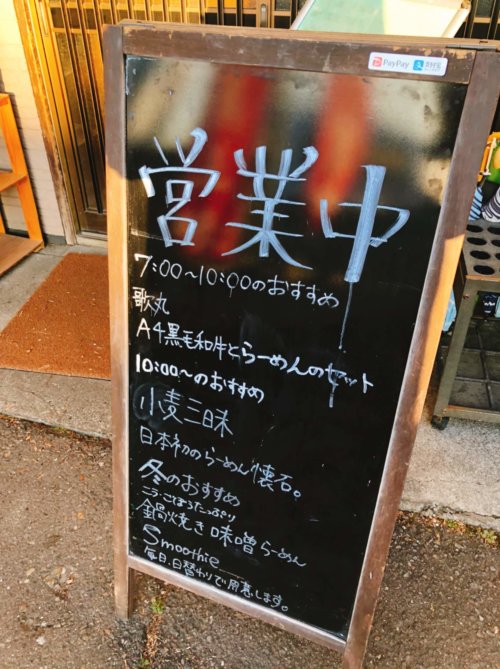 PayPay 支付宝
営業中
7:00～10:00のおすすめ
歌丸
A4黒毛和牛とらーめんのセット
10:00～のおすすめ
小麦三昧
日本初のらーめん懐石。
冬のおすすめ
ニラ・ごぼうたっぷり
鍋焼き味噌らーめん
Smoothie
毎日、日替わりで用意します。